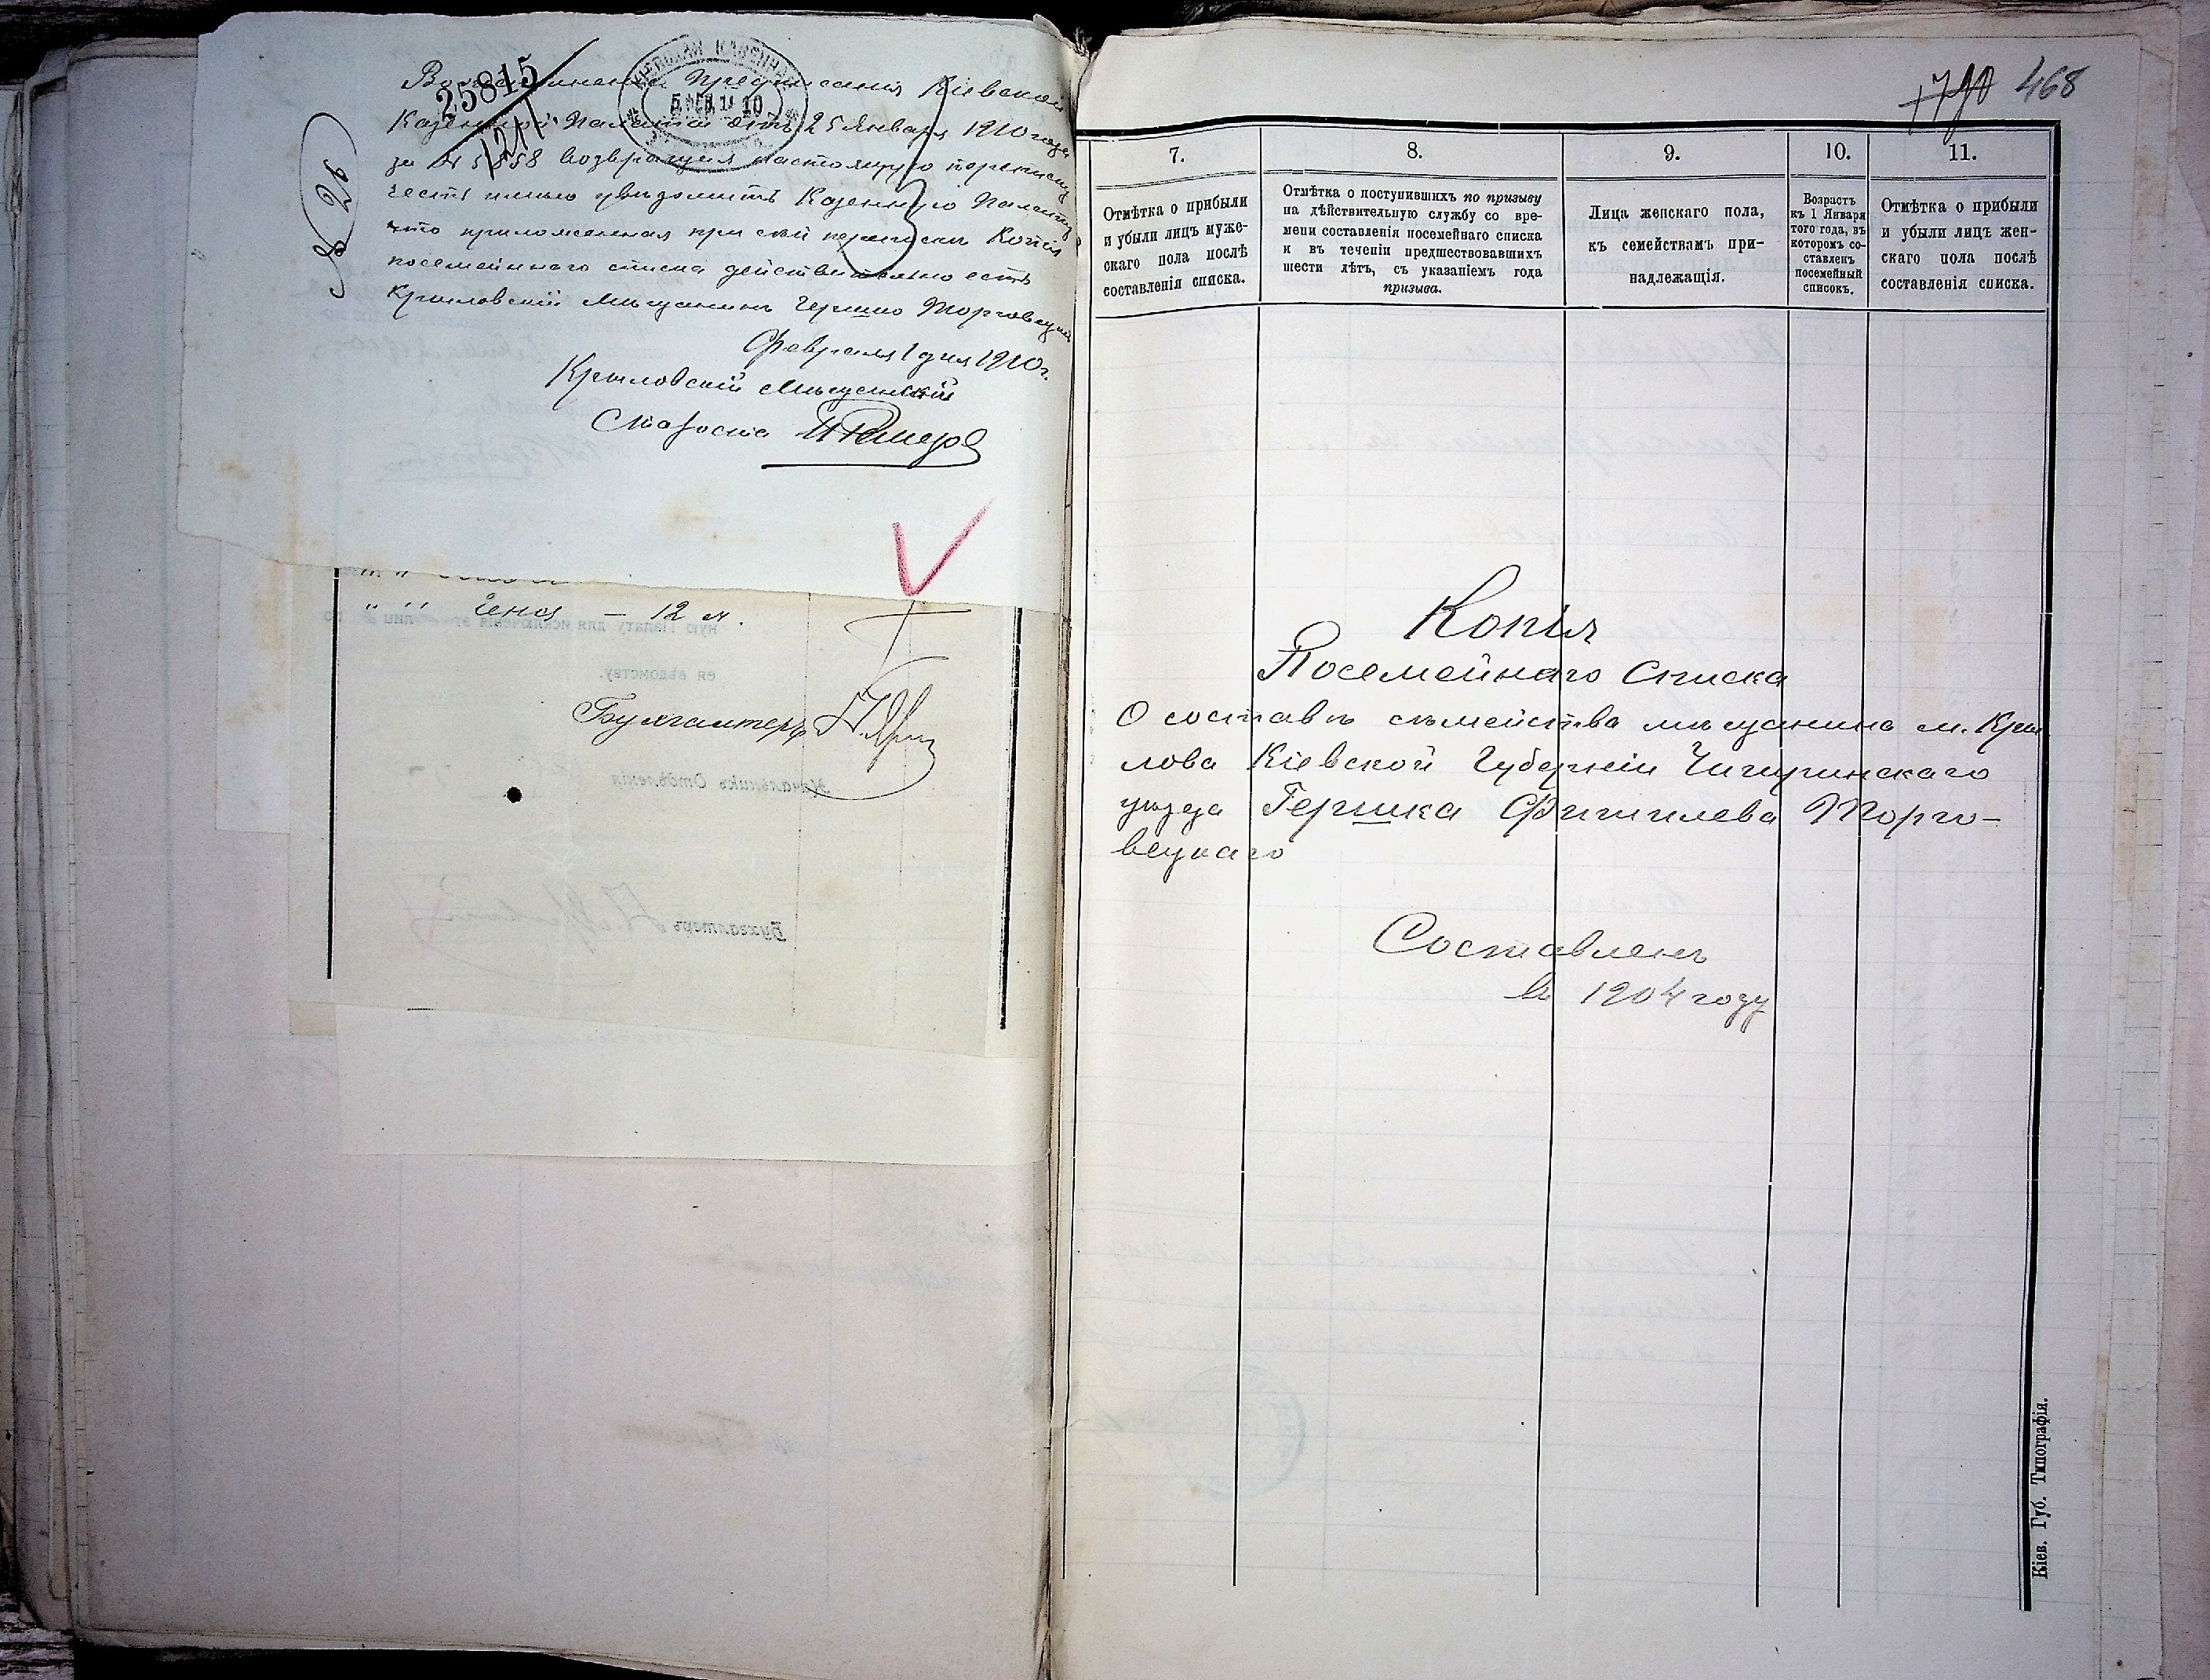 25815
121/1.
5 ФЕВ 1910
Во исполненіе Предписанія Кіевской
Казенной Палаты отъ 25 Января 1910 года
за № 5858 возвращая настоящую переписку
честь имѣю увѣдомить Казенную Палату
что приложенная при сей переписки Копія
посемейнаго списка действительно есть
Крыловскій Мѣщанинъ Гершко Торговецкій
Февраля 1 дня 1910 г.
Крыловскій Мѣщанскій
Староста
" " Ёна — 12 л.
ную Палату для исключенія
ея вѣдомству.
Бухгалтеръ
Начальникъ Отдѣленія
Бухгалтеръ
790 468
7.
8.
9.
10.
11.
Отмѣтка о прибыли
и убыли лицъ муже-
скаго пола послѣ
составленія списка.
Отмѣтка о поступившихъ по призыву
на дѣйствительную службу со вре-
мени составленія посемейнаго списка
и въ теченіи предшествовавшихъ
шести лѣтъ, съ указаніемъ года
призыва.
Лица женскаго пола,
къ семействамъ при-
надлежащія.
Возрастъ
къ 1 Января
того года, въ
которомъ со-
ставленъ
посемейный
списокъ.
Отмѣтка о прибыли
и убыли лицъ жен-
скаго пола послѣ
составленія списка.
Копія
Посемейнаго Списка
О составѣ съмейства мѣщанина м. Кры
лова Кіевской Губерніи Чигиринскаго
уѣзда Гершка Фишилева Торго-
вецкаго
Составленъ
въ 1904 году
Кіев. Губ. Типографія.